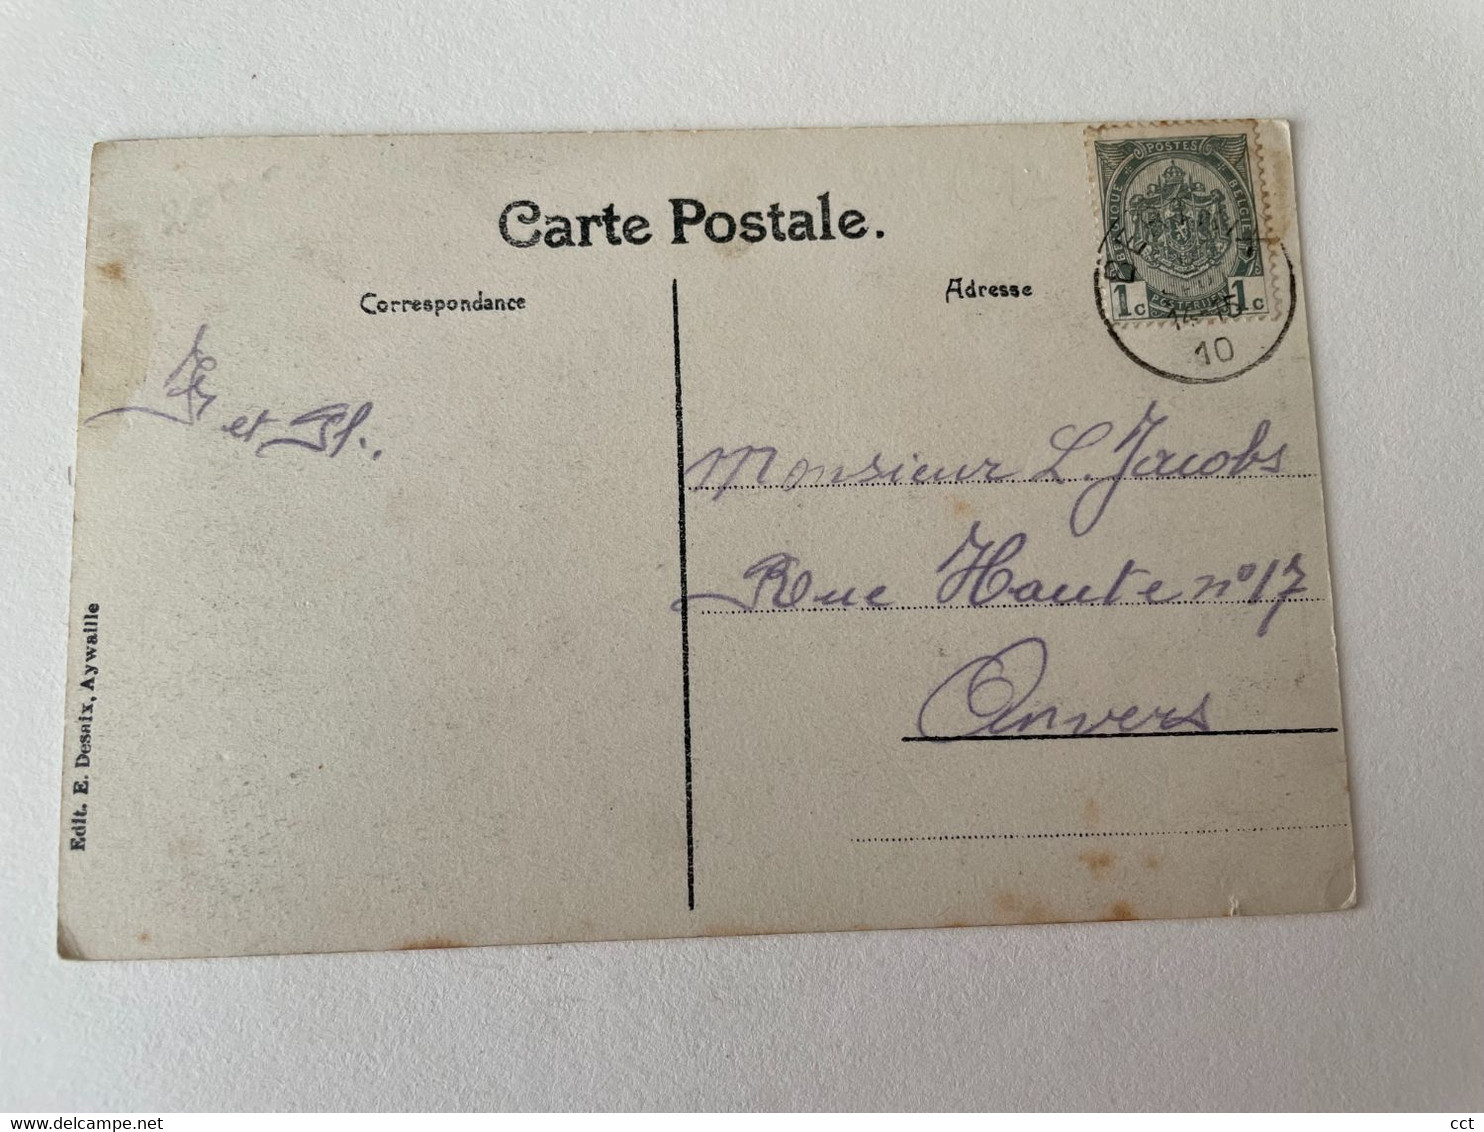 Carte Postale.
Correspondance
Adresse
POSTES
BELGIQUE
BELGIE
1c 1c
14-15
10
et
Monsieur L. Jacobs
Rue Haute n° 17
Anvers
Edit. E. Desaix, Aywaille
cct